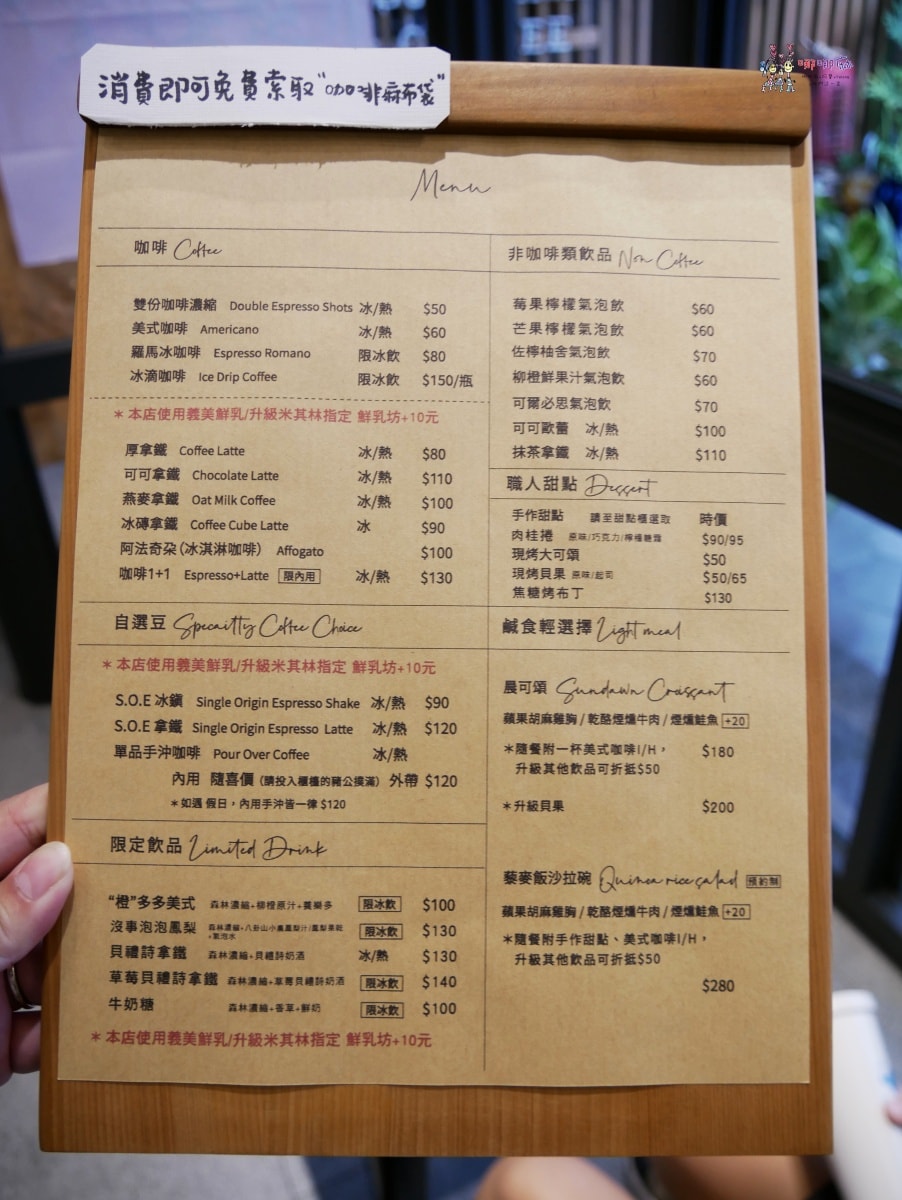 消費即可免費索取"咖啡麻布袋"
Menu
咖啡 Coffee
雙份咖啡濃縮 Double Espresso Shots 冰/熱 $50
美式咖啡 Americano 冰/熱 $60
羅馬冰咖啡 Espresso Romano 限冰飲 $80
冰滴咖啡 Ice Drip Coffee 限冰飲 $150/瓶
*本店使用義美鮮乳/升級米其林指定 鮮乳坊+10元
厚拿鐵 Coffee Latte 冰/熱 $80
可可拿鐵 Chocolate Latte 冰/熱 $110
燕麥拿鐵 Oat Milk Coffee 冰/熱 $100
冰磚拿鐵 Coffee Cube Latte 冰 $90
阿法奇朶(冰淇淋咖啡) Affogato $100
咖啡1+1 Espresso+Latte 限內用 冰/熱 $130
自選豆 Specailty Coffee Choice
*本店使用義美鮮乳/升級米其林指定 鮮乳坊+10元
S.O.E 冰鎮 Single Origin Espresso Shake 冰/熱 $90
S.O.E 拿鐵 Single Origin Espresso Latte 冰/熱 $120
單品手沖咖啡 Pour Over Coffee 冰/熱
內用 隨喜價 (請投入櫃檯的豬公撲滿) 外帶 $120
*如遇 假日,內用手沖皆一律 $120
限定飲品 Limited Drink
"橙"多多美式 森林濃縮+柳橙原汁+養樂多 限冰飲 $100
沒事泡泡鳳梨 森林濃縮+八卦山小農鳳梨汁/鳳梨果乾+氣泡水 限冰飲 $130
貝禮詩拿鐵 森林濃縮+貝禮詩奶酒 冰/熱 $130
草莓貝禮詩拿鐵 森林濃縮+草莓貝禮詩奶酒 限冰飲 $140
牛奶糖 森林濃縮+香草+鮮奶 限冰飲 $100
*本店使用義美鮮乳/升級米其林指定 鮮乳坊+10元
非咖啡類飲品 Non Coffee
莓果檸檬氣泡飲 $60
芒果檸檬氣泡飲 $60
佐檸柚舍氣泡飲 $70
柳橙鮮果汁氣泡飲 $60
可爾必思氣泡飲 $70
可可歐蕾 冰/熱 $100
抹茶拿鐵 冰/熱 $110
職人甜點 Dessert
手作甜點 請至甜點櫃選取 時價
肉桂捲 原味/巧克力/檸檬糖霜 $90/95
現烤大可頌 $50
現烤貝果 原味/起司 $50/65
焦糖烤布丁 $130
鹹食輕選擇 Light meal
晨可頌 Sundawn Croissant
蘋果胡麻雞胸/乾酪煙燻牛肉/煙燻鮭魚 +20
*隨餐附一杯美式咖啡I/H, $180
升級其他飲品可折抵$50
*升級貝果 $200
藜麥飯沙拉碗 Quinea rice salad 預約制
蘋果胡麻雞胸/乾酪煙燻牛肉/煙燻鮭魚 +20
*隨餐附手作甜點、美式咖啡I/H,
升級其他飲品可折抵$50
$280